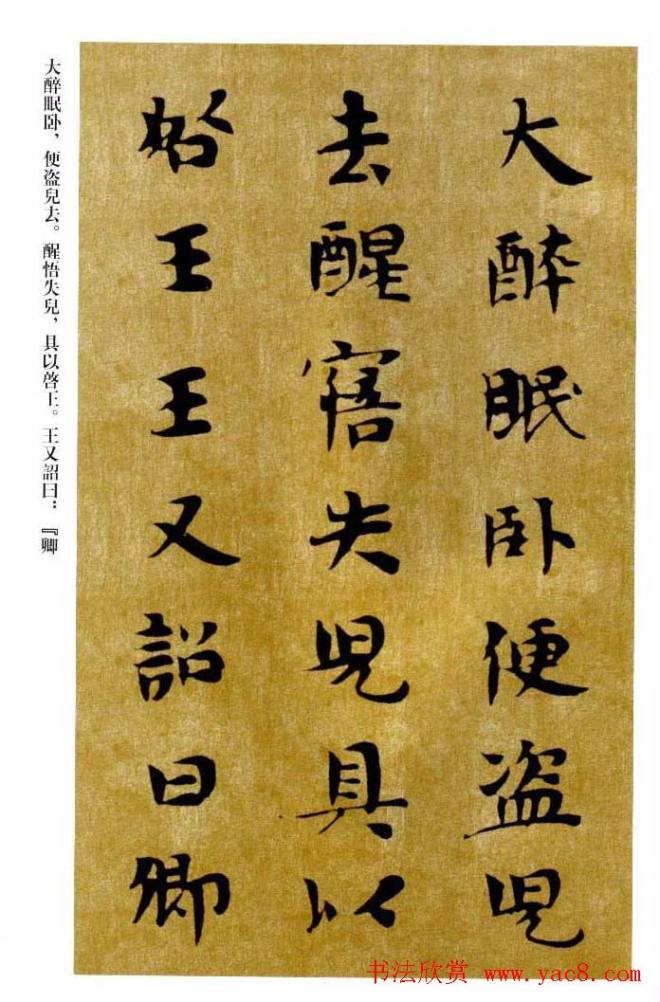 大酔眠卧便盗児
去醒寤失児具以
啓王王又詔曰卿
大醉眠卧，便盗兒去。醒悟失兒，具以啓王。王又詔曰：『卿
书法欣赏 www.yac8.com